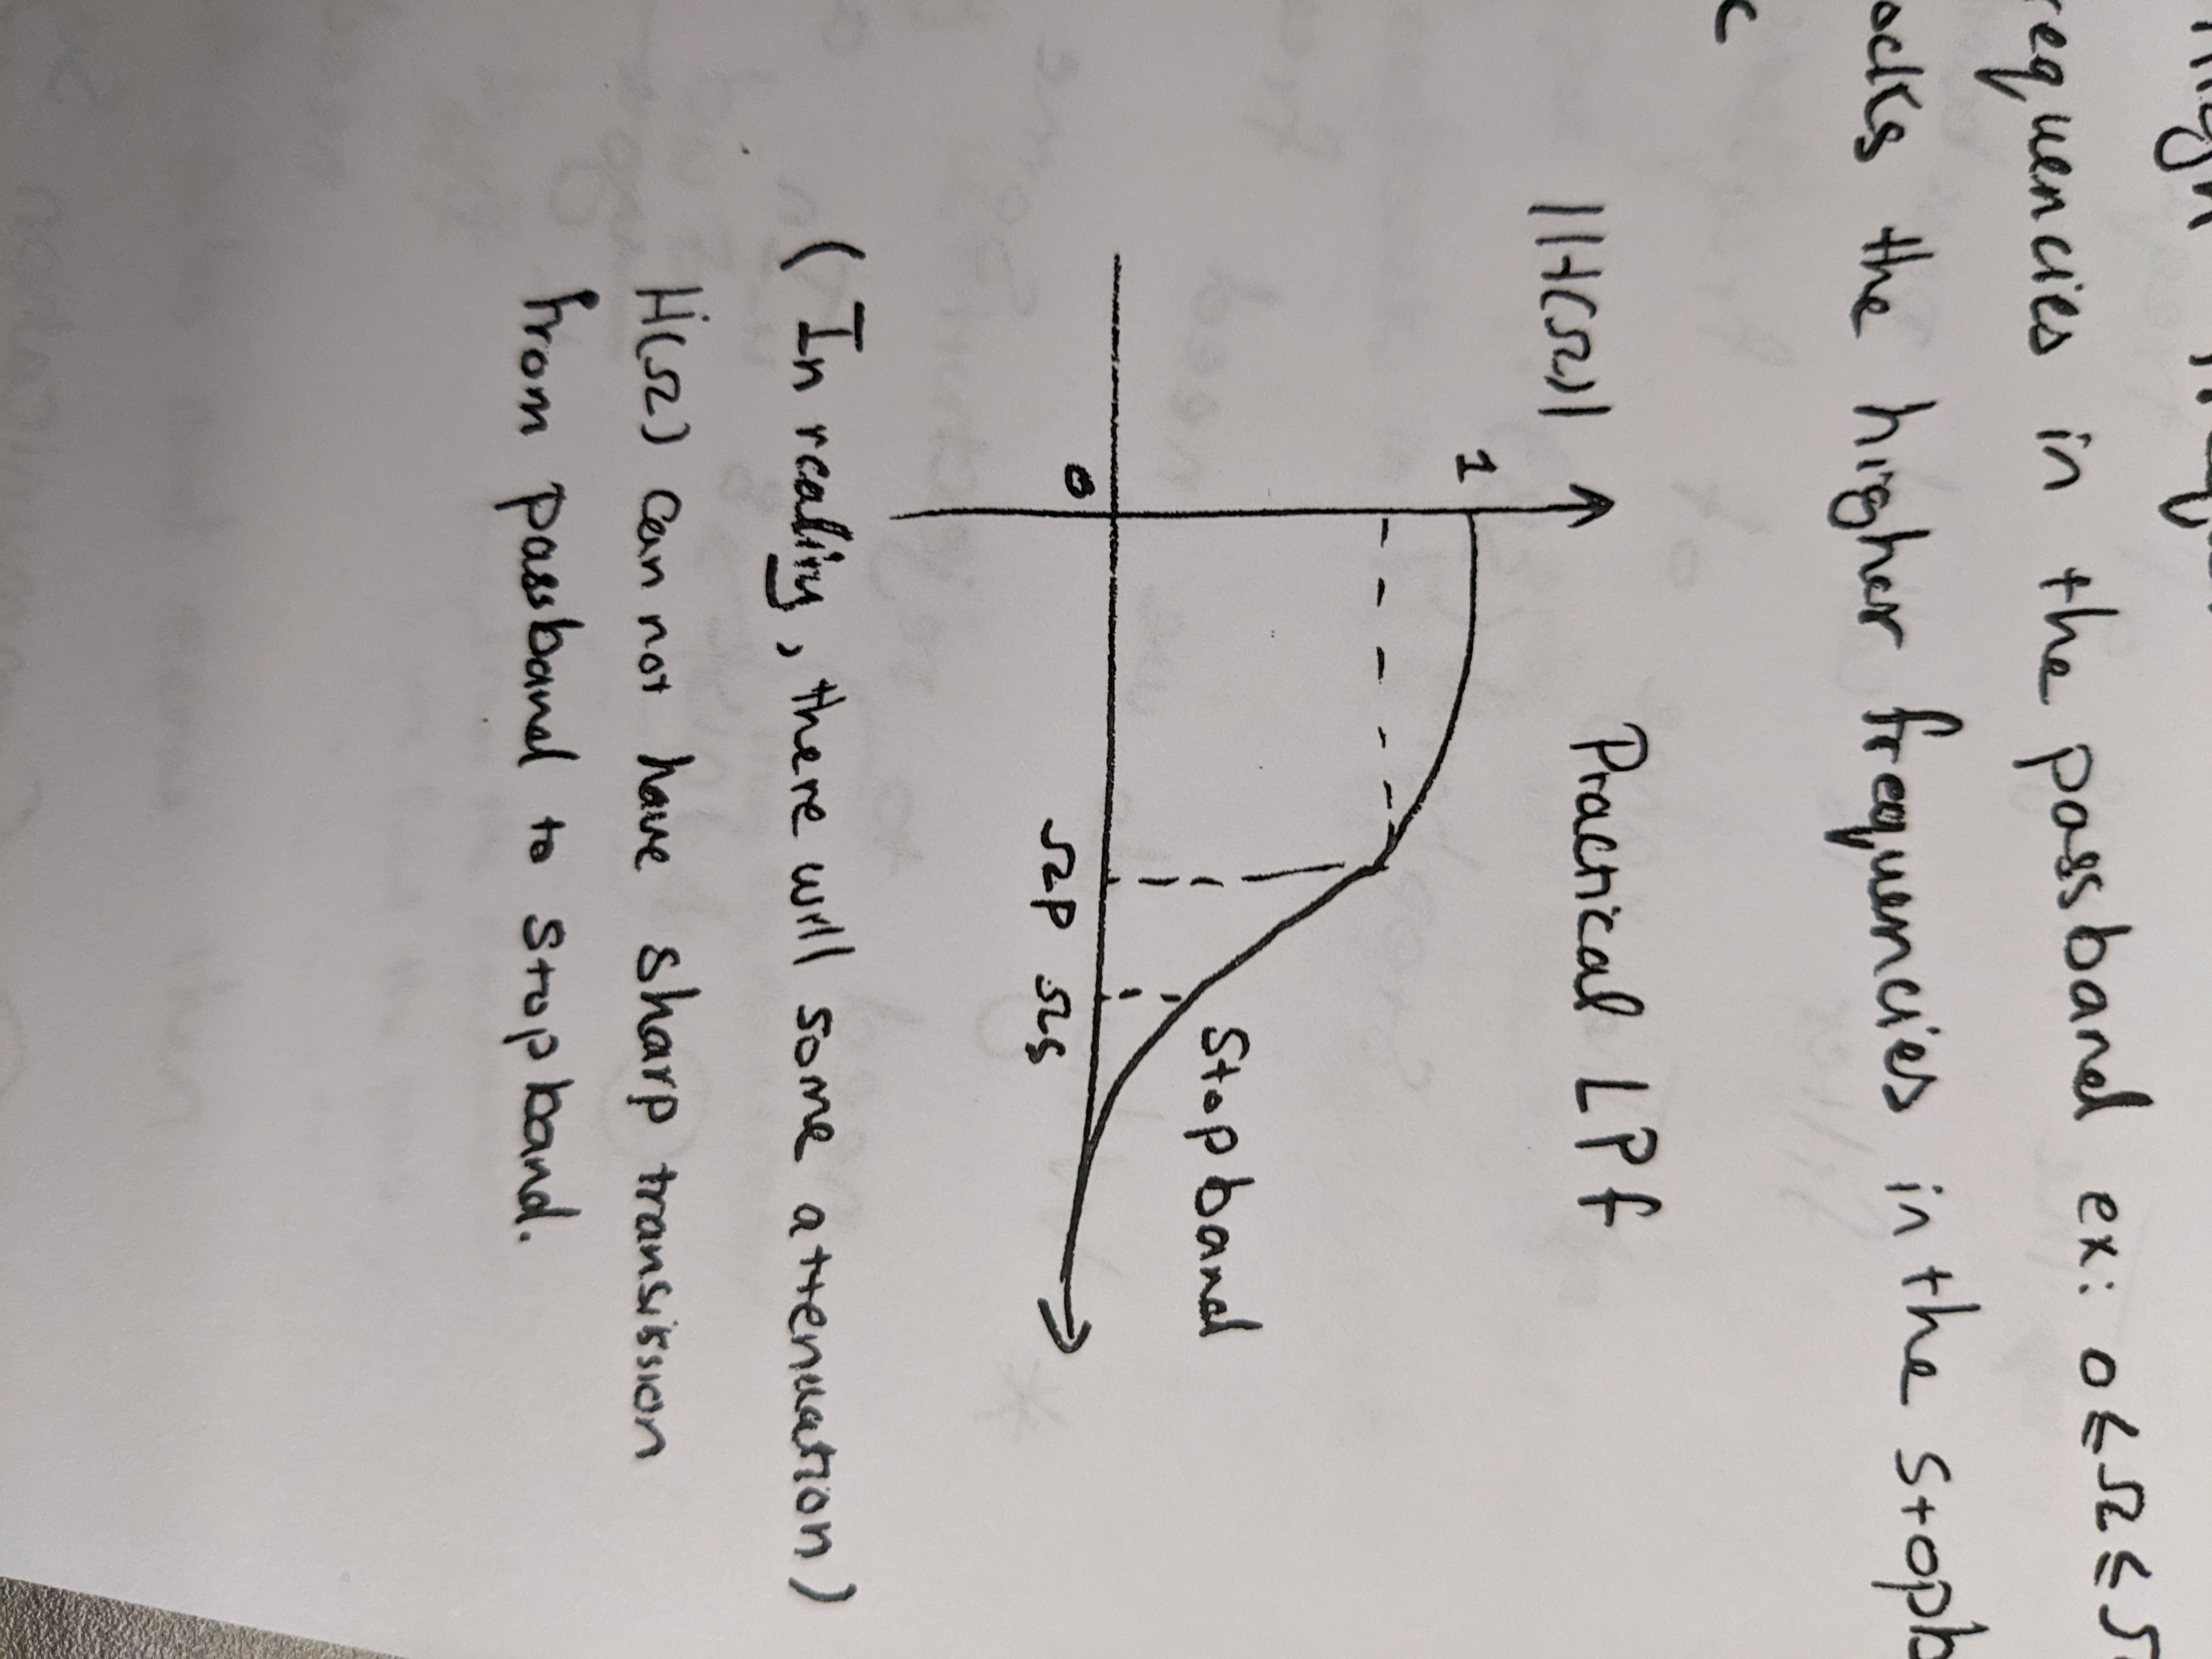 high frequ
requencies in the passband ex: 0≤Ω≤Ω
ocks the higher frequencies in the stopb
c
Practical LPf
|H(Ω)|
1
Stopband
0
Ωp Ωs
(In reality, there will some attenuation)
H(Ω) can not have sharp transission
from passband to stopband.